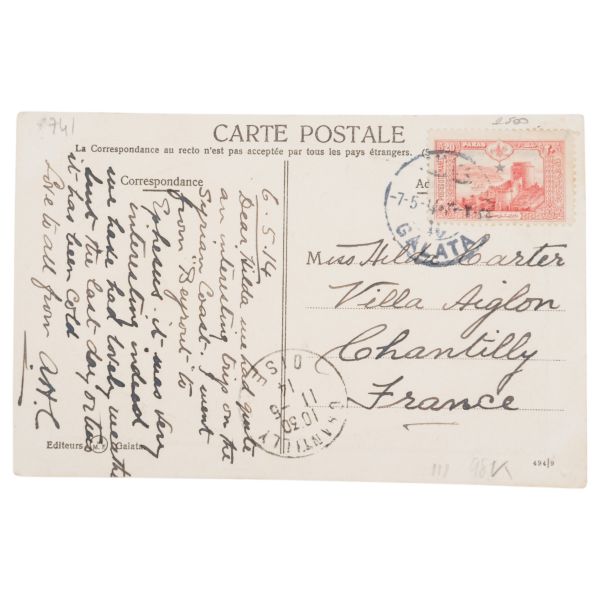 2741
2500
CARTE POSTALE
La Correspondance au recto n'est pas acceptée par tous les pays étrangers.
Correspondance
20 PARAS
-7-5-
GALATA
6.5.14
Dear Hilda we had quite
an interesting trip on the
Syrian Coast. I went
from Beyrout to
Ephesus it was very
interesting indeed
we have had lovely weath
but the last day or two
it has been cold
Love to all from A.H.C
Miss Hilda Carter
Villa Aiglon
Chantilly
France
CHANTILLY
OISE
10 30
11 - 5
14
Editeurs M.F. Galata
494/9
111 98K